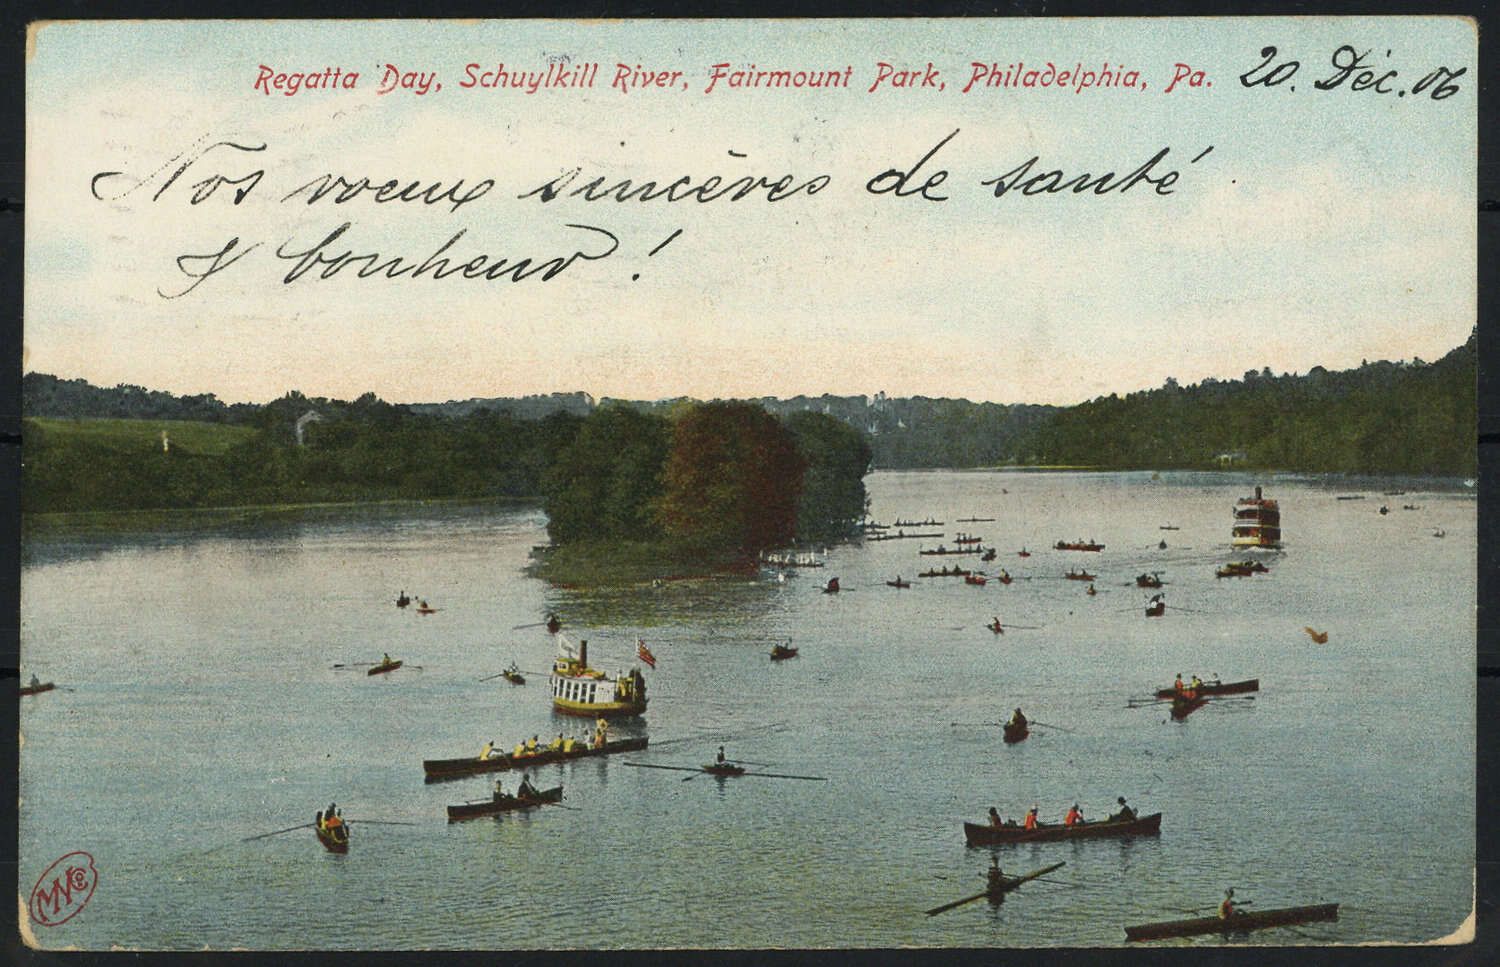 Regatta Day, Schuylkill River, Fairmount Park, Philadelphia, Pa. 20. Déc. 06
Nos voeux sincères de santé
& bonheur !
MVCo